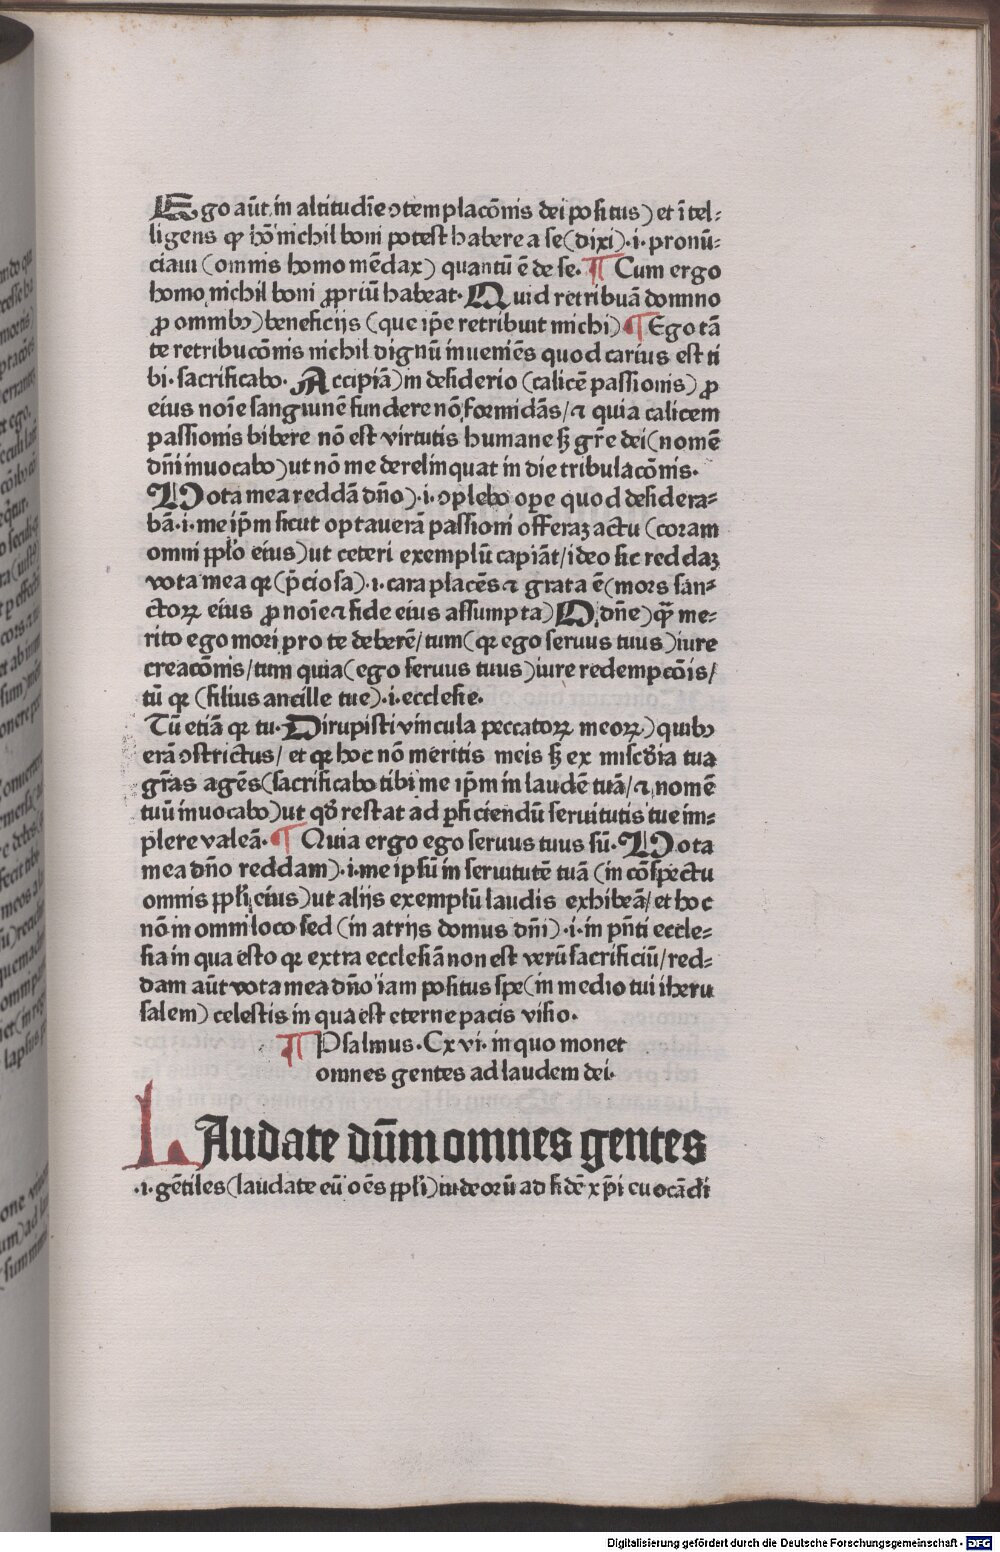 Ego aūt in altitudīe ↄtemplacōnis dei positus) et ītel⸗
ligens ꝙ hō nichil boni potest habere a se (dixi) .i. pronū⸗
ciaui (omnis homo mēdax) quantū ē de se. ¶ Cum ergo
homo nichil boni ꝓpriū habeat. Quid retribuā domino
ꝓ omnibꝰ) beneficijs (que ip̄e retribuit michi) ¶ Ego tā
te retribucōnis nichil dignū inueniēs quod carius est ti
bi. sacrificabo. Accipiā) in desiderio (calicē passionis) ꝓ
eius noīe sanguinē fundere nō formidās/ ⁊ quia calicem
passionis bibere nō est virtutis humane sꝫ gr̄e dei (nomē
dn̄i inuocabo) ut nō me derelinquat in die tribulacōnis.
Vota mea reddā dn̄o) .i. ↄplebo ope quod desidera⸗
bā .i. me ip̄m sicut optauerā passioni offeraꝫ actu (coram
omni pp̄lo eius) ut ceteri exemplū capiāt/ ideo sic reddaꝫ
vota mea qꝛ (p̄ciosa) .i. cara placēs ⁊ grata ē (mors san⸗
ctoꝝ eius ꝓ noīe ⁊ fide eius assumpta) O dn̄e) ꝙ̄ me⸗
rito ego mori pro te deberē/ tum (qꝛ ego seruus tuus) iure
creacōnis/ tum quia (ego seruus tuus) iure redempcōis/
tū qꝛ (filius ancille tue) .i. ecclesie.
Tū etiā qꝛ tu. Dirupisti vincula peccatoꝝ meoꝝ) quibꝰ
erā ↄstrictus/ et qꝛ hoc nō meritis meis sꝫ ex misc̄dia tua
gr̄as agēs (sacrificabo tibi me ip̄m in laudē tuā/ ⁊ nomē
tuū inuocabo) ut qd̄ restat ad ꝑficiendū seruitutis tue im⸗
plere valeā. ¶ Quia ergo ego seruus tuus sū. Vota
mea dn̄o reddam) .i. me ipsū in seruitutē tuā (in cōspectu
omnis pp̄li eius) ut alijs exemplū laudis exhibeā/ et hoc
nō in omni loco sed (in atrijs domus dn̄i) .i. in pn̄ti eccle⸗
sia in qua esto qꝛ extra ecclesiā non est verū sacrificiū/ red⸗
dam aūt vota mea dn̄o iam positus spe (in medio tui iheru
salem) celestis in qua est eterne pacis visio.
¶ Psalmus. Cxvi. in quo monet
omnes gentes ad laudem dei.
LAudate dūm omnes gentes
.i. gētiles (laudate eū oēs pp̄li) iudeorū ad fidē xp̄i euocādi